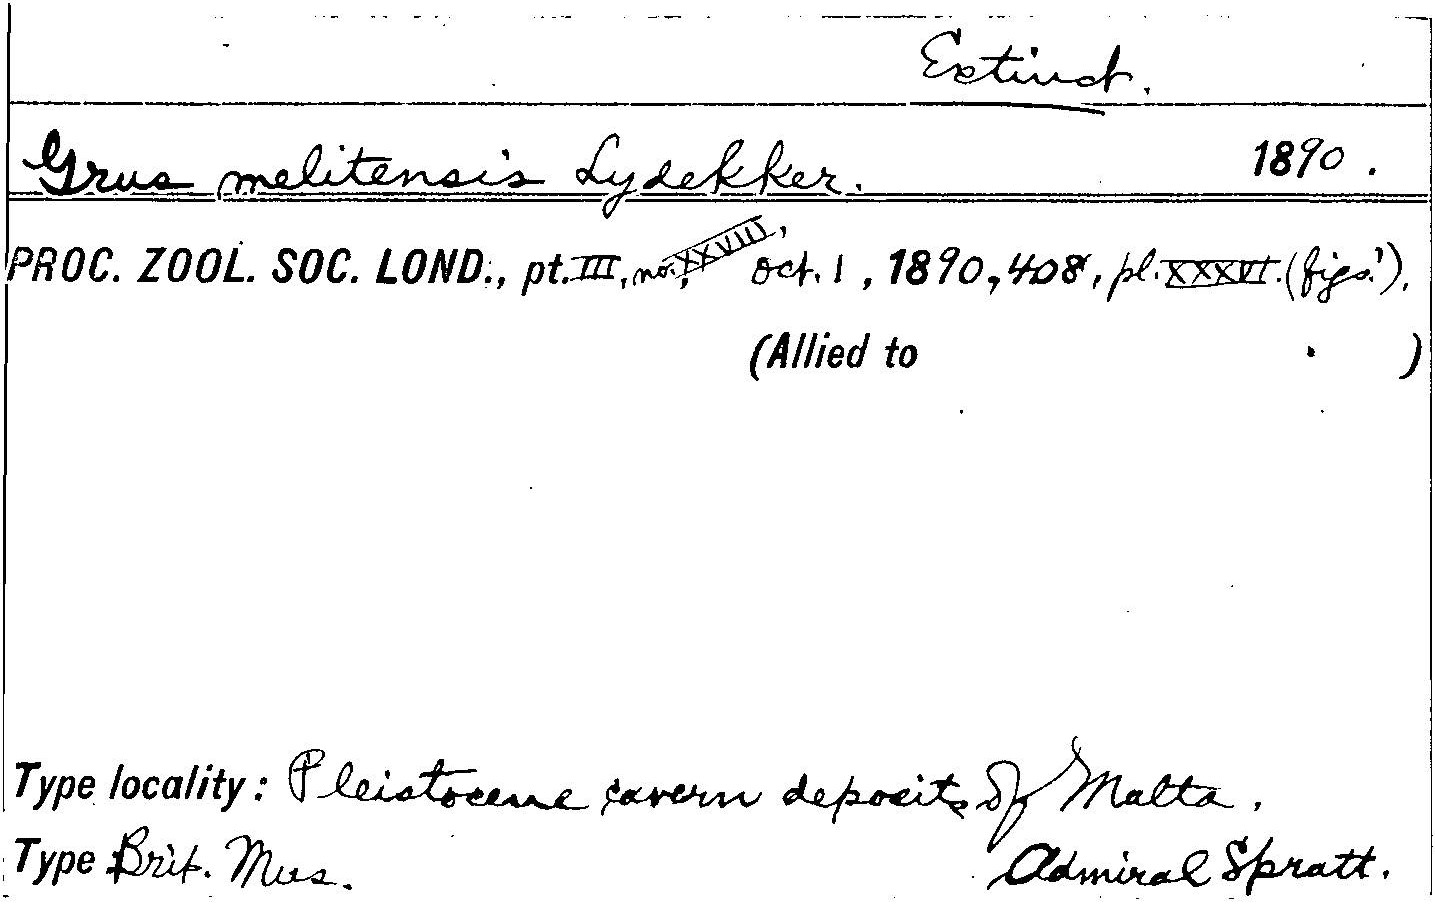 Extinct.
Grus melitensis Lydekker. 1890.
PROC. ZOOL. SOC. LOND., pt. III, no. XXVIII, Oct. 1, 1890, 408, pl. XXXVI. (figs.').
(Allied to . )
Type locality: Pleistocene cavern deposits of Malta.
Type Brit. Mus. Admiral Spratt.